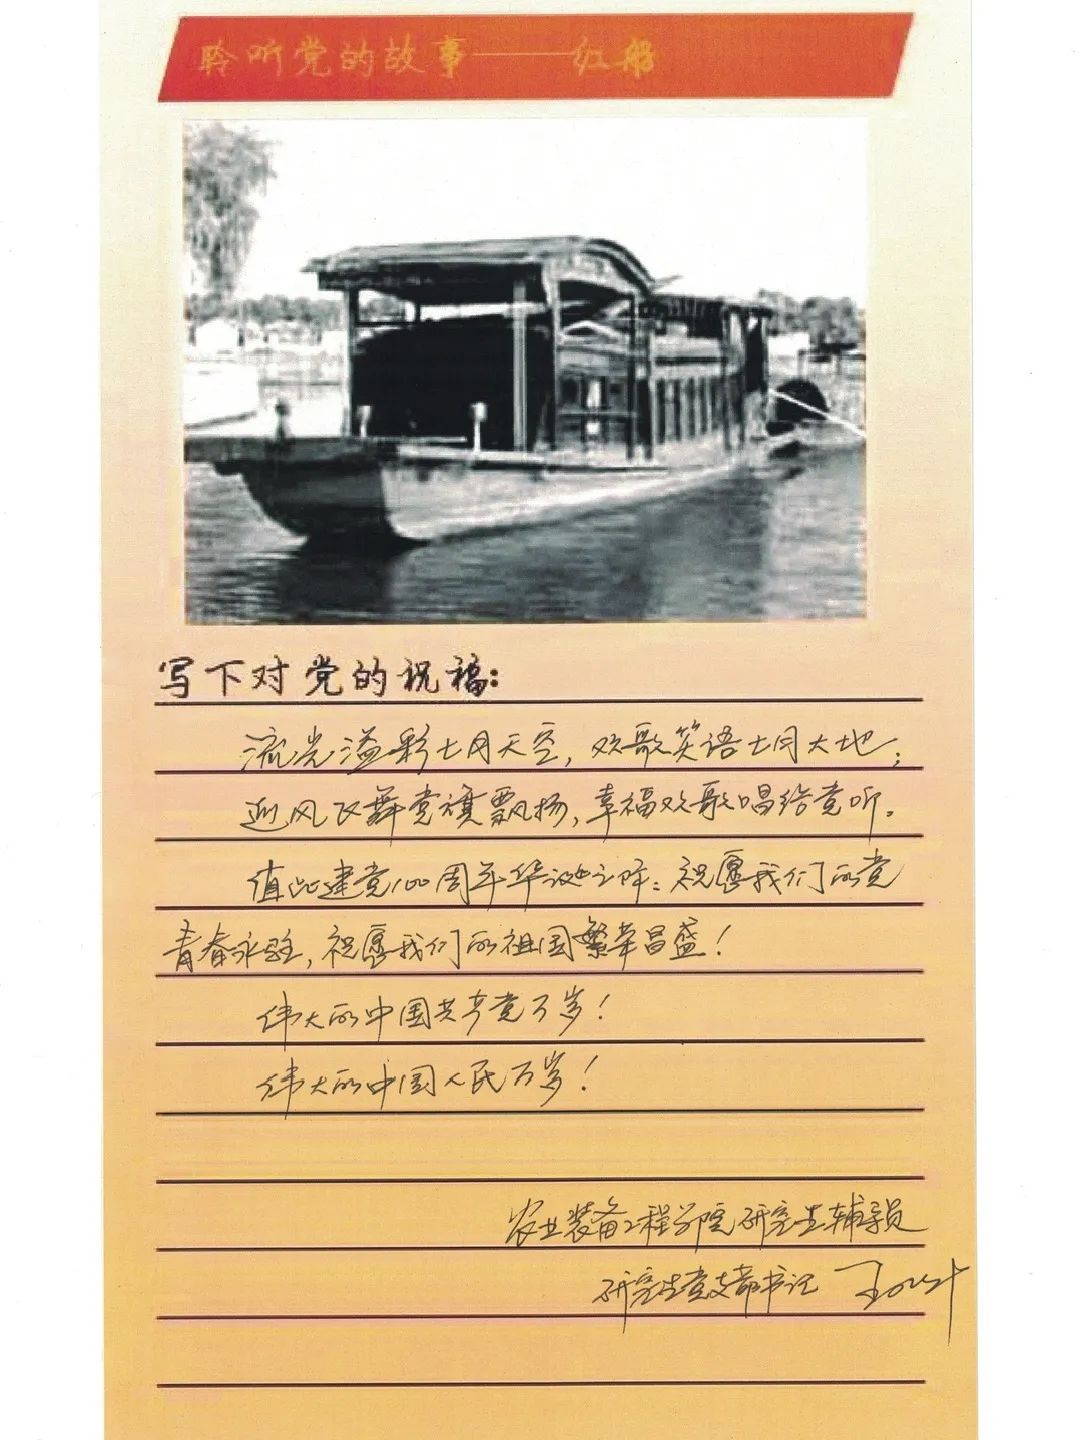 聆听党的故事——红船
写下对党的祝福:
流光溢彩七月天空，欢歌笑语七月大地；
迎风飞舞党旗飘扬，幸福欢歌唱给党听。
值此建党100周年华诞之际：祝愿我们的党
青春永驻，祝愿我们的祖国繁荣昌盛！
伟大的中国共产党万岁！
伟大的中国人民万岁！
农业装备工程学院研究生辅导员
研究生党支部书记